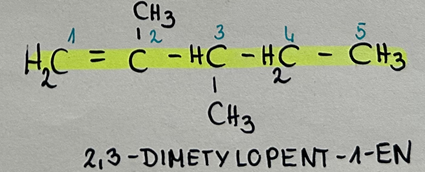 CH3
1 2 3 4 5
H2C = C - HC - H2C - CH3
CH3
2,3-DIMETYLOPENT-1-EN